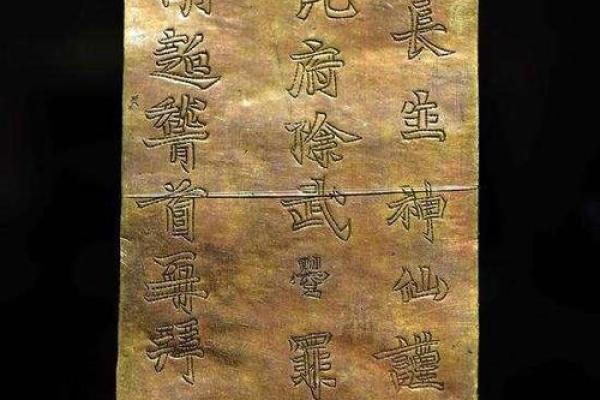 長生神仙謹
九府除武曌罪
胡超稽首再拜